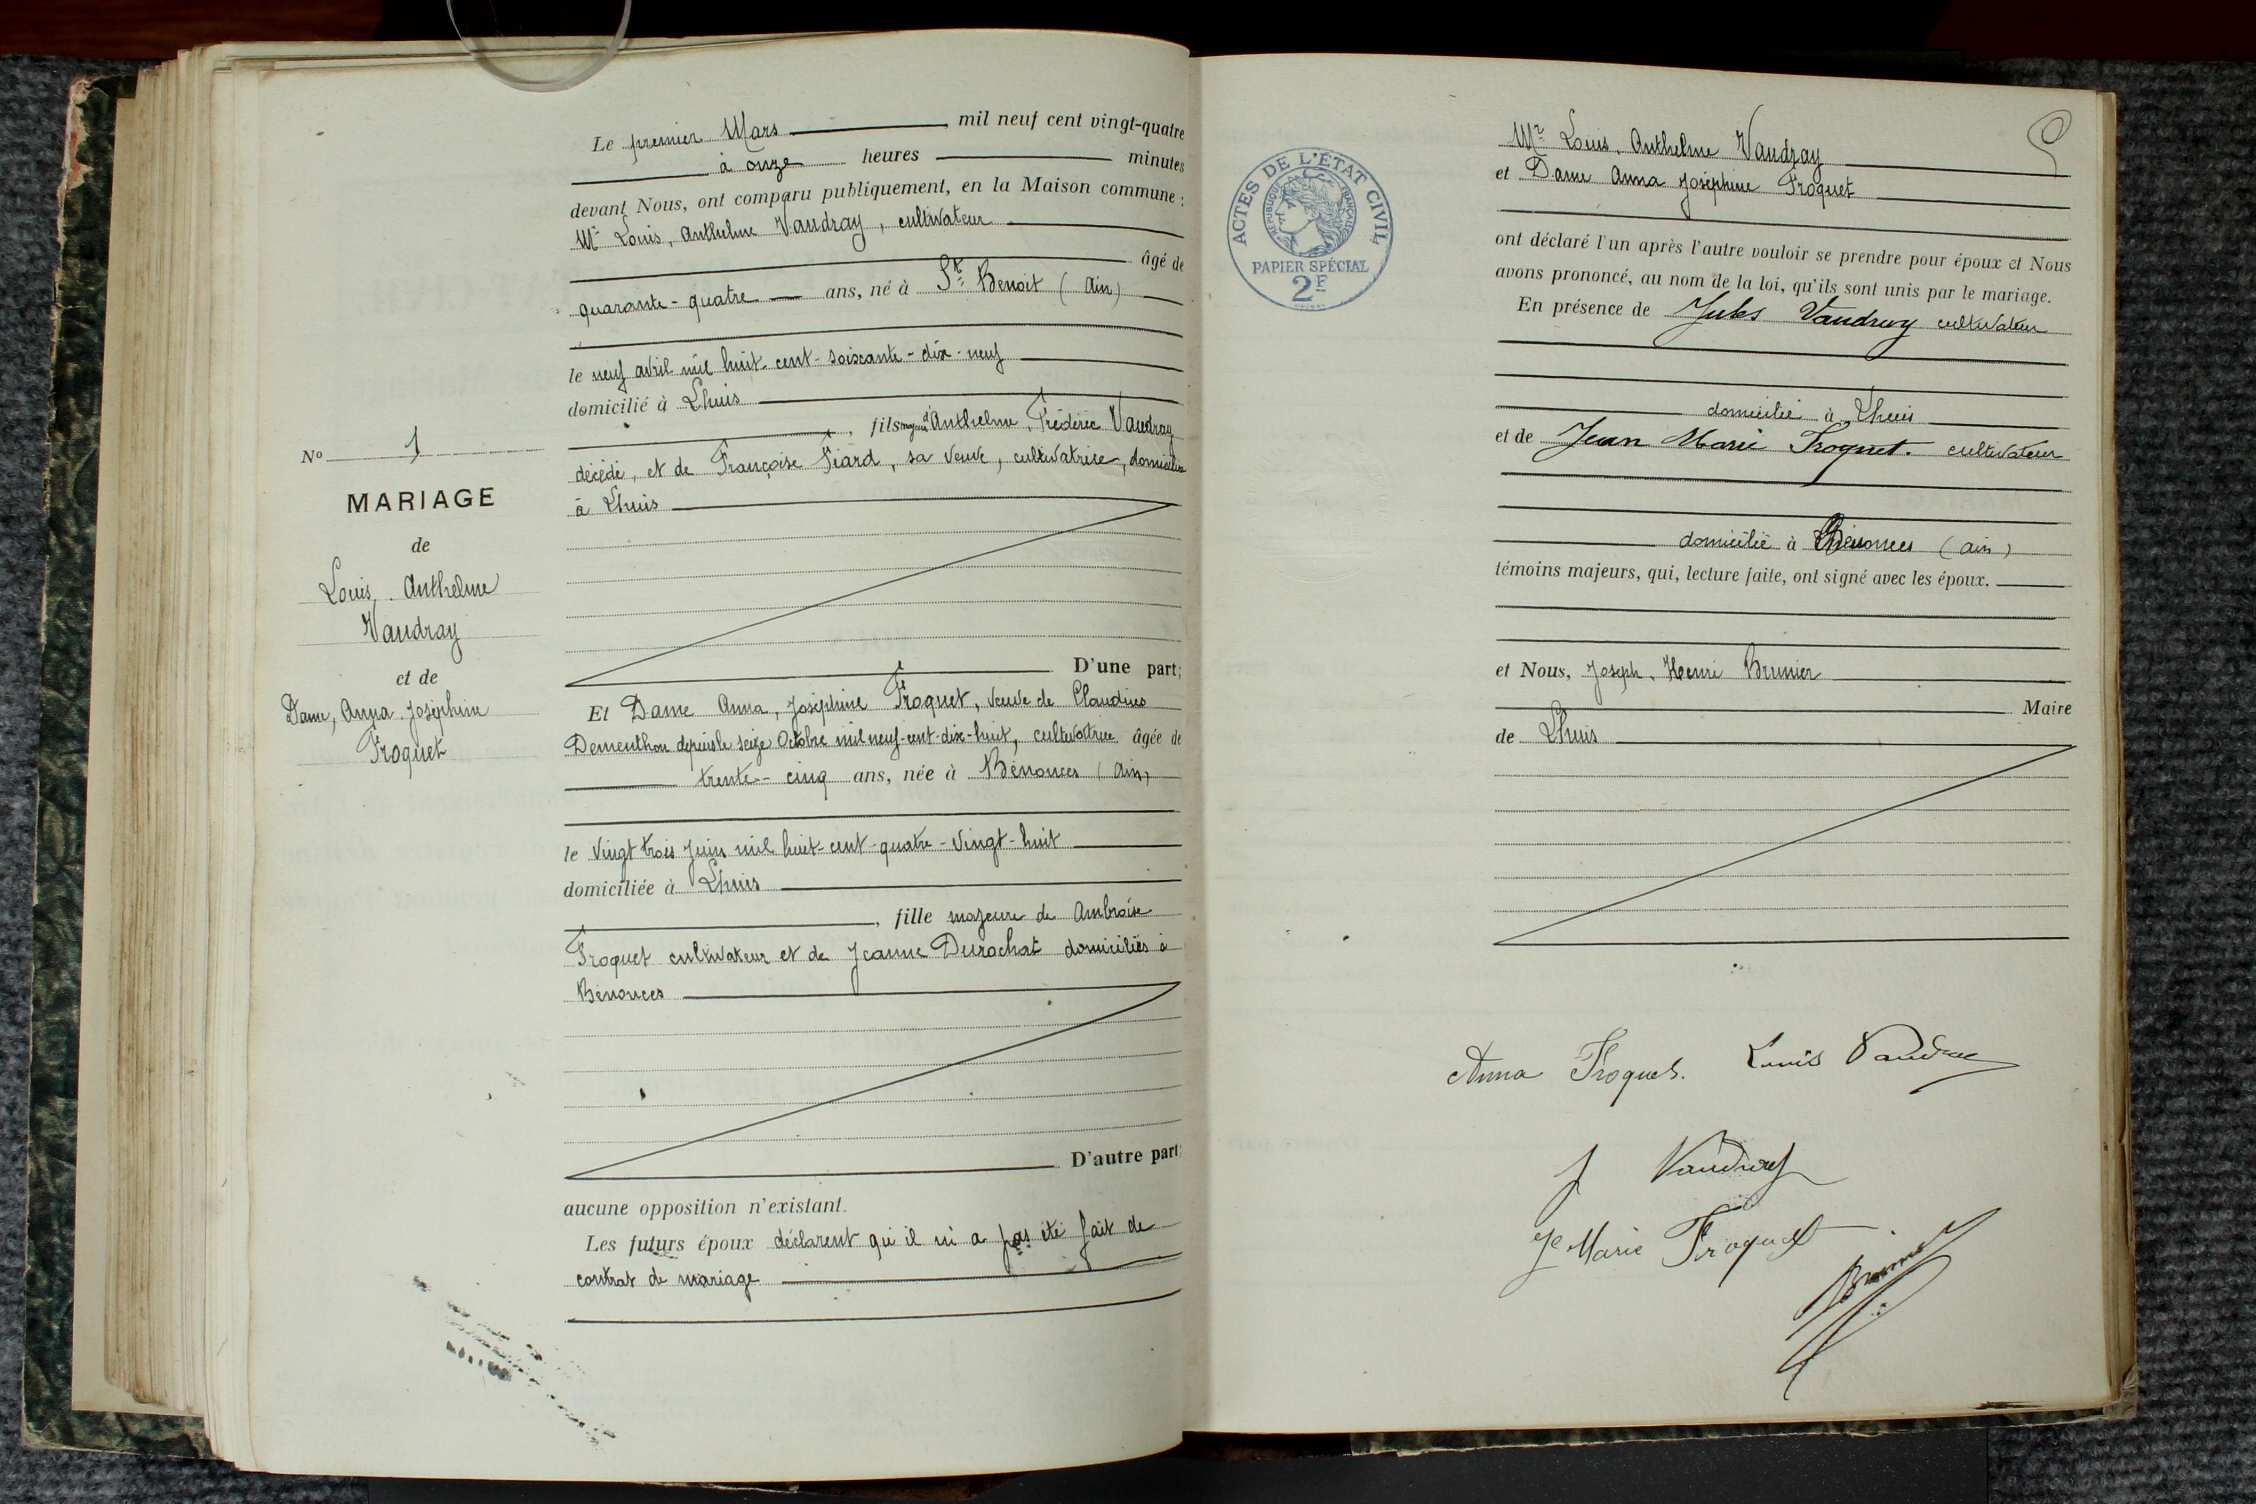 Le premier Mars mil neuf cent vingt-quatre
à onze heures minutes
devant Nous, ont comparu publiquement, en la Maison commune :
Mr Louis, Anthelme Vaudray, cultivateur
âgé de
quarante-quatre ans, né à St Benoit (Ain)
le neuf avril mil huit-cent-soixante-dix-neuf
domicilié à Lhuis
, fils majeur d'Anthelme, Frédéric Vaudray
décédé, et de Françoise Fiard, sa veuve, cultivatrice, domiciliée
à Lhuis
No 1
MARIAGE
de
Louis. Anthelme
Vaudray
et de
Dame, Anna. Joséphine
Froquet
D'une part;
Et Dame Anna, Joséphine Froquet, veuve de Claudius
Dementhon depuis le seize Octobre mil neuf-cent-dix-huit, cultivatrice âgée de
trente-cinq ans, née à Bénonces (Ain)
le vingt trois Juin mil huit-cent-quatre-vingt-huit
domiciliée à Lhuis
, fille majeure de Ambroise
Froquet cultivateur et de Jeanne Durochat domiciliés à
Bénonces
D'autre part;
aucune opposition n'existant.
Les futurs époux déclarent qu'il ni a pas été fait de
contrat de mariage
ACTES DE L'ÉTAT CIVIL
REPUBLIQUE FRANÇAISE
PAPIER SPÉCIAL
2F
Mr Louis. Anthelme Vaudray
et Dame Anna Joséphine Froquet
ont déclaré l'un après l'autre vouloir se prendre pour époux et Nous
avons prononcé, au nom de la loi, qu'ils sont unis par le mariage.
En présence de Jules Vaudray cultivateur
domicilié à Lhuis
et de Jean Marie Froquet. cultivateur
domicilié à Bénonces (ain)
témoins majeurs, qui, lecture faite, ont signé avec les époux.
et Nous, Joseph. Henri Brunier
Maire
de Lhuis
Anna Froquet. Louis Vaudray
J Vaudray
Je Marie Froquet
Brunier